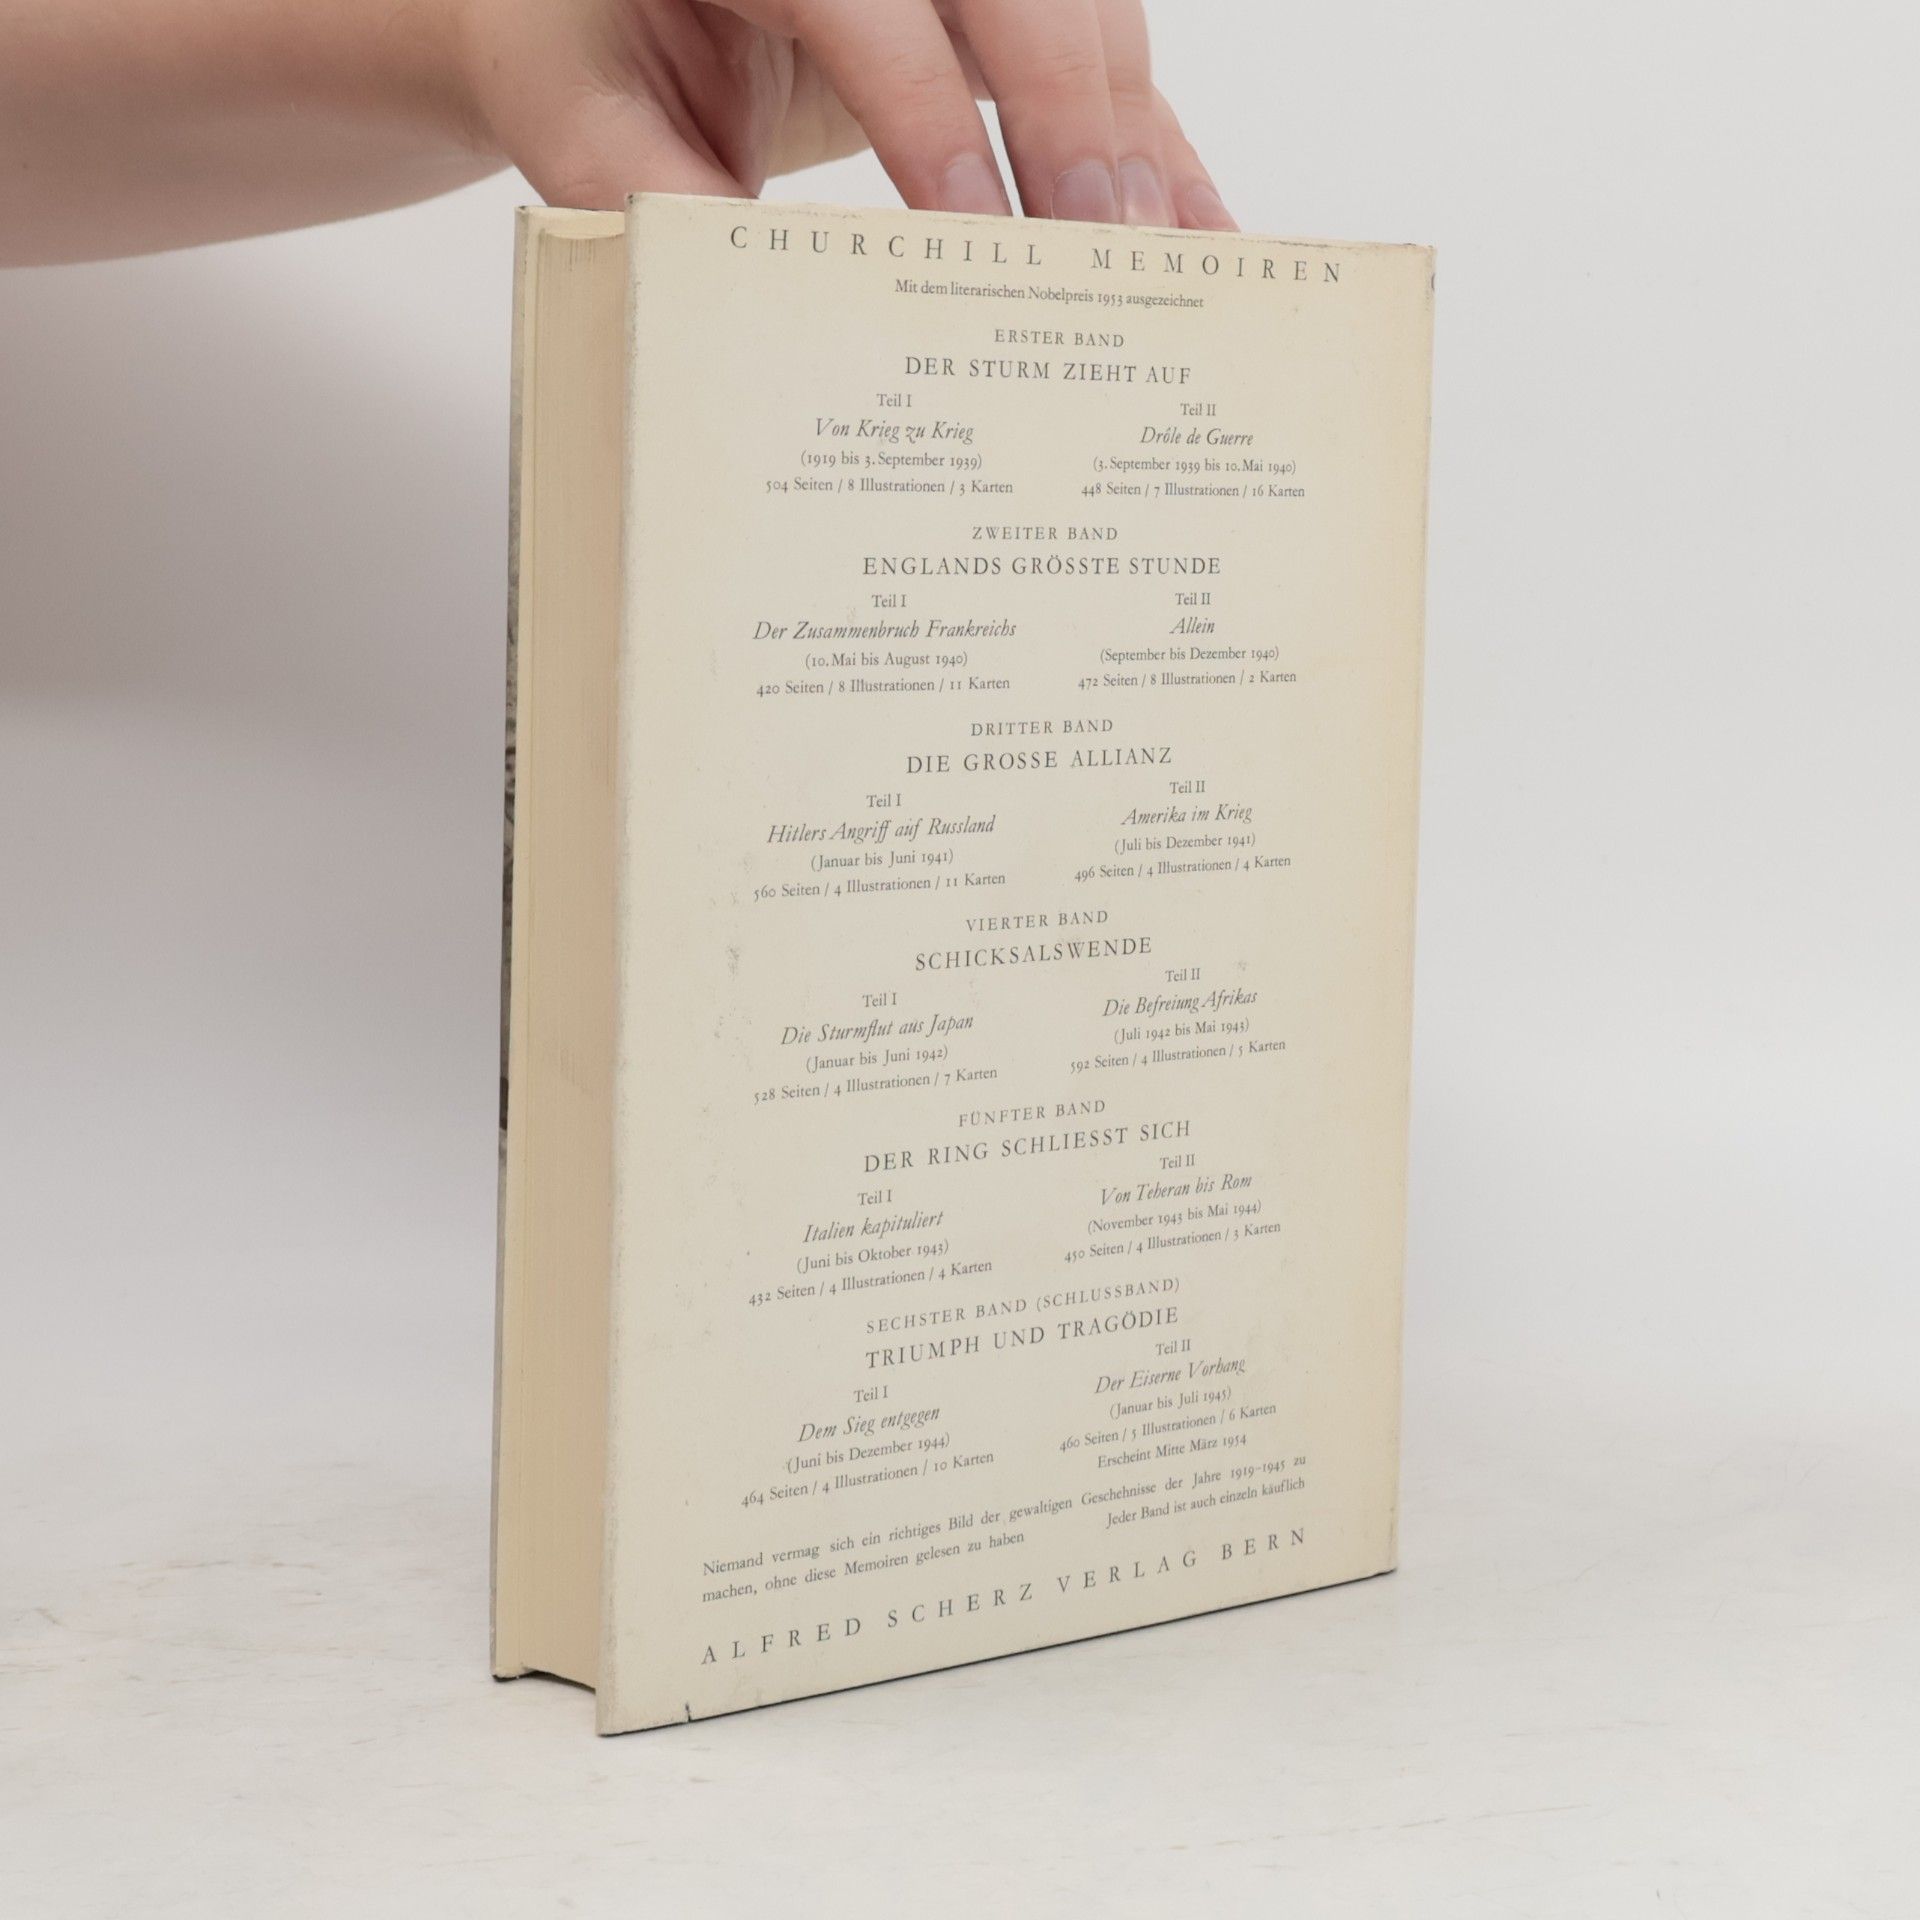 CHURCHILL MEMOIREN
Mit dem literarischen Nobelpreis 1953 ausgezeichnet
ERSTER BAND
DER STURM ZIEHT AUF
Teil I
Von Krieg zu Krieg
(1919 bis 3. September 1939)
504 Seiten / 8 Illustrationen / 3 Karten
Teil II
Drôle de Guerre
(3. September 1939 bis 10. Mai 1940)
448 Seiten / 7 Illustrationen / 16 Karten
ZWEITER BAND
ENGLANDS GRÖSSTE STUNDE
Teil I
Der Zusammenbruch Frankreichs
(10. Mai bis August 1940)
420 Seiten / 8 Illustrationen / 11 Karten
Teil II
Allein
(September bis Dezember 1940)
472 Seiten / 8 Illustrationen / 2 Karten
DRITTER BAND
DIE GROSSE ALLIANZ
Teil I
Hitlers Angriff auf Russland
(Januar bis Juni 1941)
560 Seiten / 4 Illustrationen / 11 Karten
Teil II
Amerika im Krieg
(Juli bis Dezember 1941)
496 Seiten / 4 Illustrationen / 4 Karten
VIERTER BAND
SCHICKSALSWENDE
Teil I
Die Sturmflut aus Japan
(Januar bis Juni 1942)
528 Seiten / 4 Illustrationen / 7 Karten
Teil II
Die Befreiung Afrikas
(Juli 1942 bis Mai 1943)
592 Seiten / 4 Illustrationen / 5 Karten
FÜNFTER BAND
DER RING SCHLIESST SICH
Teil I
Italien kapituliert
(Juni bis Oktober 1943)
432 Seiten / 4 Illustrationen / 4 Karten
Teil II
Von Teheran bis Rom
(November 1943 bis Mai 1944)
450 Seiten / 4 Illustrationen / 3 Karten
SECHSTER BAND (SCHLUSSBAND)
TRIUMPH UND TRAGÖDIE
Teil I
Dem Sieg entgegen
(Juni bis Dezember 1944)
464 Seiten / 4 Illustrationen / 10 Karten
Teil II
Der Eiserne Vorhang
(Januar bis Juli 1945)
460 Seiten / 5 Illustrationen / 6 Karten
Erscheint Mitte März 1954
Niemand vermag sich ein richtiges Bild der gewaltigen Geschehnisse der Jahre 1919–1945 zu
machen, ohne diese Memoiren gelesen zu haben Jeder Band ist auch einzeln käuflich
ALFRED SCHERZ VERLAG BERN